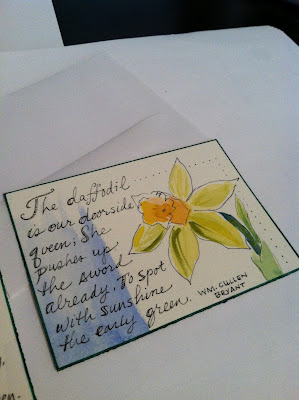 The daffodil
is our doorside
queen; She
pushes up
the sword
already, To spot
with sunshine
the early green.
WM. CULLEN
BRYANT